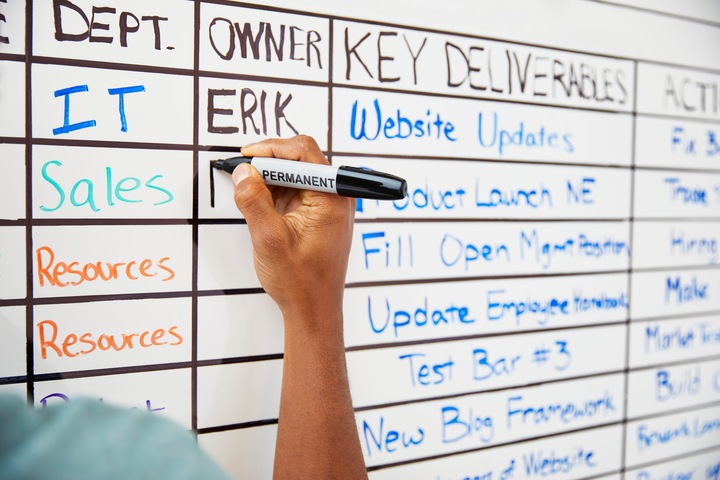 DEPT. OWNER KEY DELIVERABLES ACTI
IT ERIK Website Updates Fix B
Sales PERMANENT oduct Launch NE
Resources Fill Open Mgmt Position Hiring
Resources Update Employee Handbook Make
Test Bar #3 Market
New Blog Framework Build
of Website